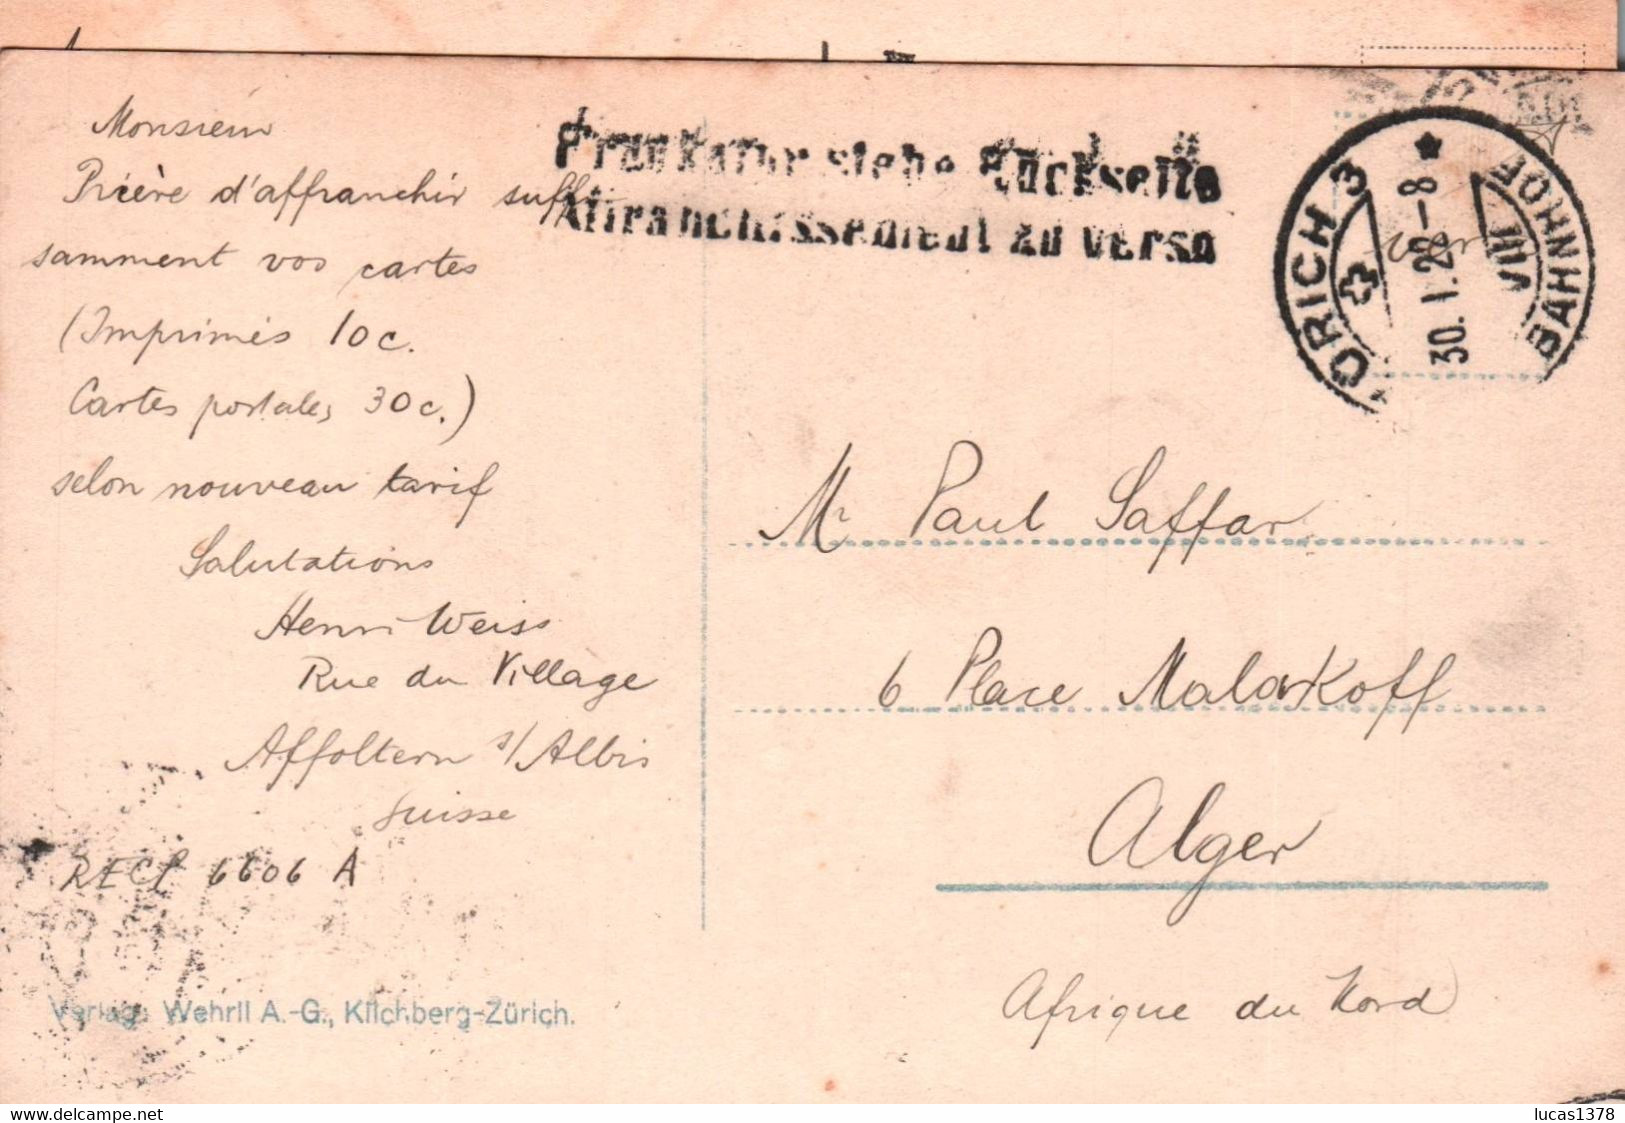 Monsieur
Prière d'affranchir suffi-
samment vos cartes
(Imprimés 10c.
Cartes postales 30c.)
selon nouveau tarif
Salutations
Henri Weiss
Rue du Village
Affoltern s/Albis
Suisse
RECP 6606 A
Verlag: Wehrli A.-G., Kilchberg-Zürich.
Frankatur siehe Rückseite
Affranchissement au verso
ZÜRICH 3 BAHNHOF
30.I.22-8
VIII
Mr Paul Saffar
6 Place Malakoff
Alger
Afrique du Nord
delcampe.net
lucas1378